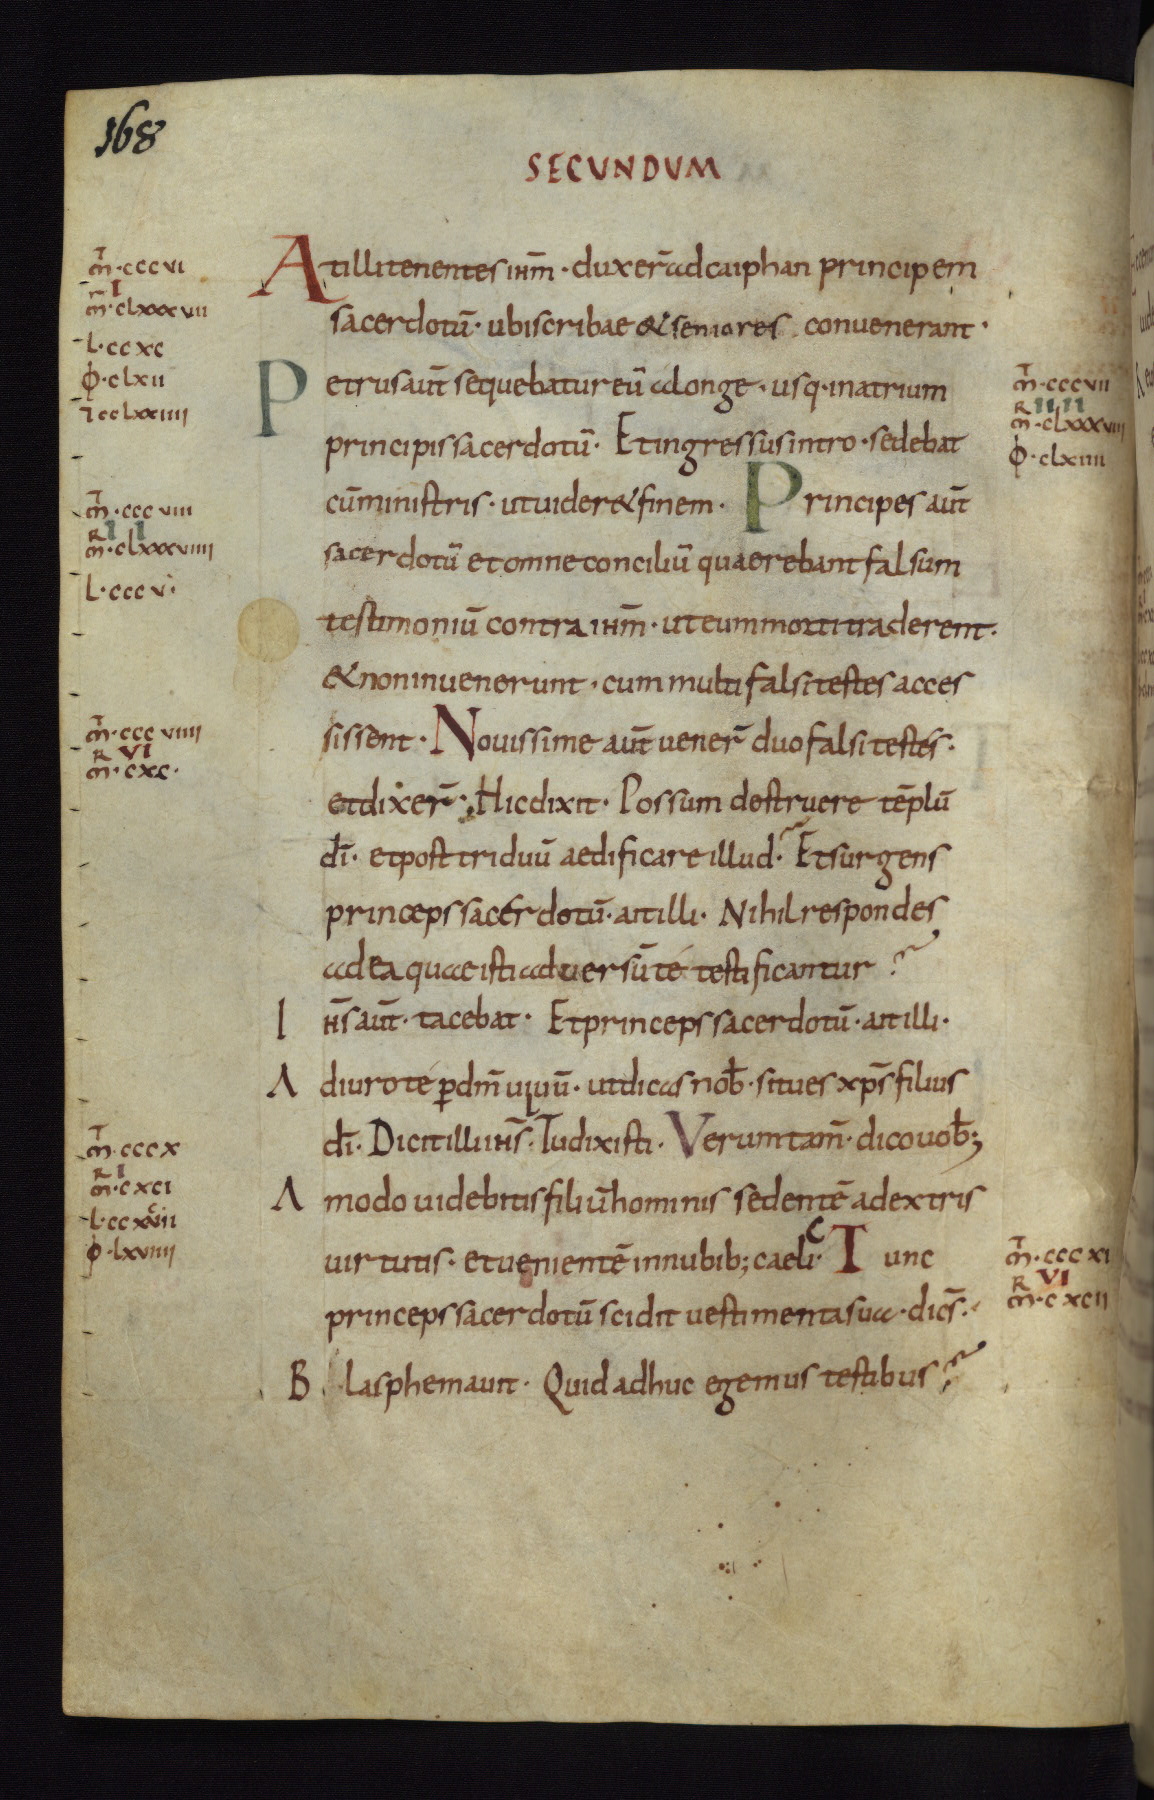 168
SECUNDUM
Atilli tenentes ihm̄ · duxer̄ ad caiphan principem
sacerdotū · ubi scribae & seniores convenerant ·
Petrus aut̄ sequebatur eū a longe · usq · in atrium
principis sacerdotū · Et ingressus intro · sedebat
cū ministris · ut uider& finem · Principes aut̄
sacerdotū et omne conciliū quaerebant falsum
testimoniū contra ihm̄ · ut eum morti traderent ·
& non inuenerunt · cum multi falsi testes acces
sissent · Novissime aut̄ uener̄ duo falsi testes ·
et dixer̄ · Hic dixit · Possum destruere tēplū
dī · et post triduū aedificare illud · Et surgens
princeps sacerdotū · ait illi · Nihil respondes
ad ea quae isti aduersū té testificantur
Ihs̄ aut̄ · tacebat · Et princeps sacerdotū · ait illi ·
Adiuro té p dm̄ uiuū · ut dicas nob̄ · si tu es xps̄ filius
dī · Dicit illi ihs̄ · Tu dixisti · Verumtam̄ · dico uob̄;
Amodo uidebitis filiū hominis sedentē a dextris
uirtutis · et uenientē in nubib; caeli · Tunc
princeps sacerdotū scidit uestimenta sua · dics̄ ·
Blasphemaunt · Quid adhuc egemus testibus
T
m̄ · cccvi
R I
m̄ · clxxxvii
L · ccxc
clxii
cclxxiiii
T
m̄ · cccviii
R II
m̄ · clxxxviiii
L · cccv
T
m̄ · cccviiii
R VI
m̄ · cxc ·
T
m̄ · cccx
R I
m̄ · cxci
lxviiii
T
m̄ · cccvii
R II II
m̄ · clxxxviii
clxiiii
T
m̄ · cccxi
R VI
m̄ · cxcii